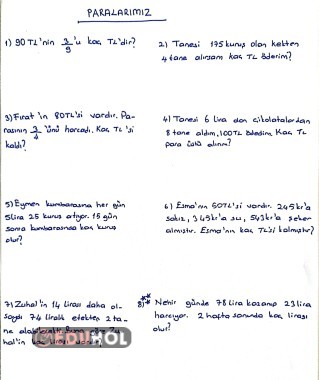 PARALARIMIZ
1) 90 TL'nin 2/9 'u kaç TL'dir?
2) Tanesi 175 kuruş olan kekten
4 tane alırsam kaç TL öderim?
3) Fırat'ın 80TL'si vardır. Pa-
rasının 3/4 'ünü harcadı. Kaç TL'si
kaldı?
4) Tanesi 6 lira olan çikolatalardan
8 tane aldım, 100TL ödedim. Kaç TL
para üstü alırım?
5) Eymen kumbarasına her gün
5lira 25 kuruş atıyor. 15 gün
sonra kumbarasında kaç kuruş
olur?
6) Esma'nın 50TL'si vardır. 245kr'a
sakız, 345kr'a su, 543kr'a şeker
almıştır. Esma'nın kaç TL'si kalmıştır?
7) Zuhal'in 14 lirası daha ol-
saydı 74 liralık etekten 2 ta-
ne
hal'in
8) Nehir günde 78 lira kazanıp 23 lira
harcıyor. 2 hafta sonunda kaç lirası
olur?
EDİHOL